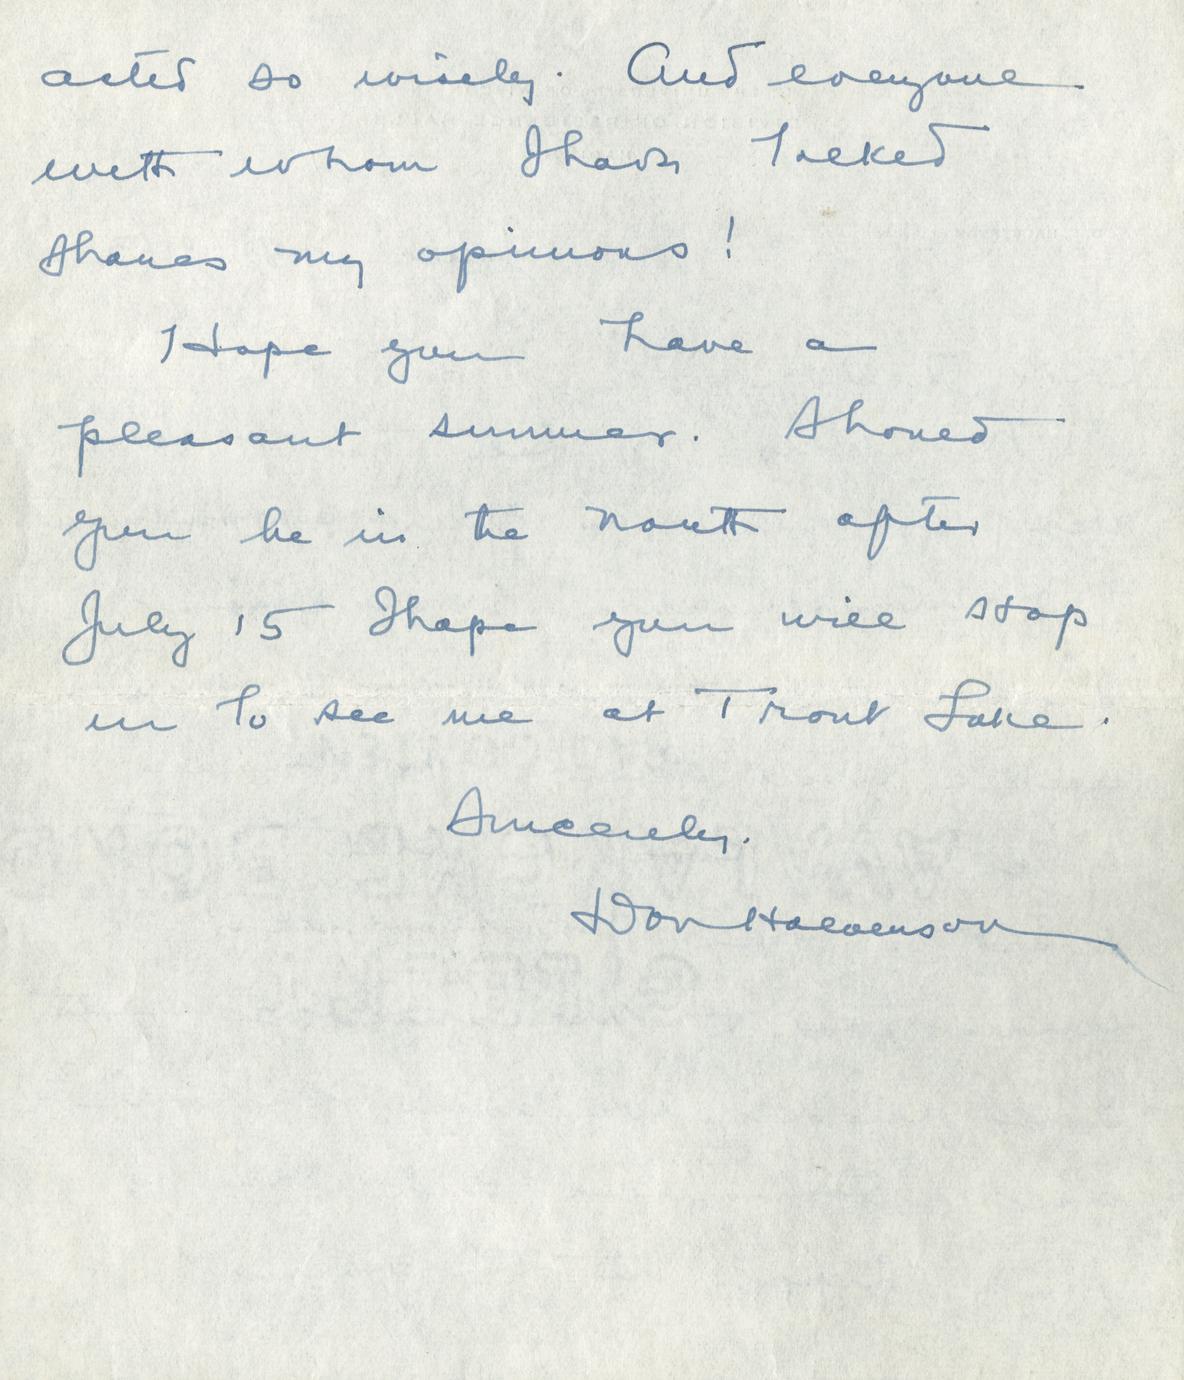 acted so wisely. And everyone
with whom I have talked
shares my opinions!
Hope you have a
pleasant summer. Should
you be in the north after
July 15 I hope you will stop
in to see me at Trout Lake.
Sincerely.
Don Halverson